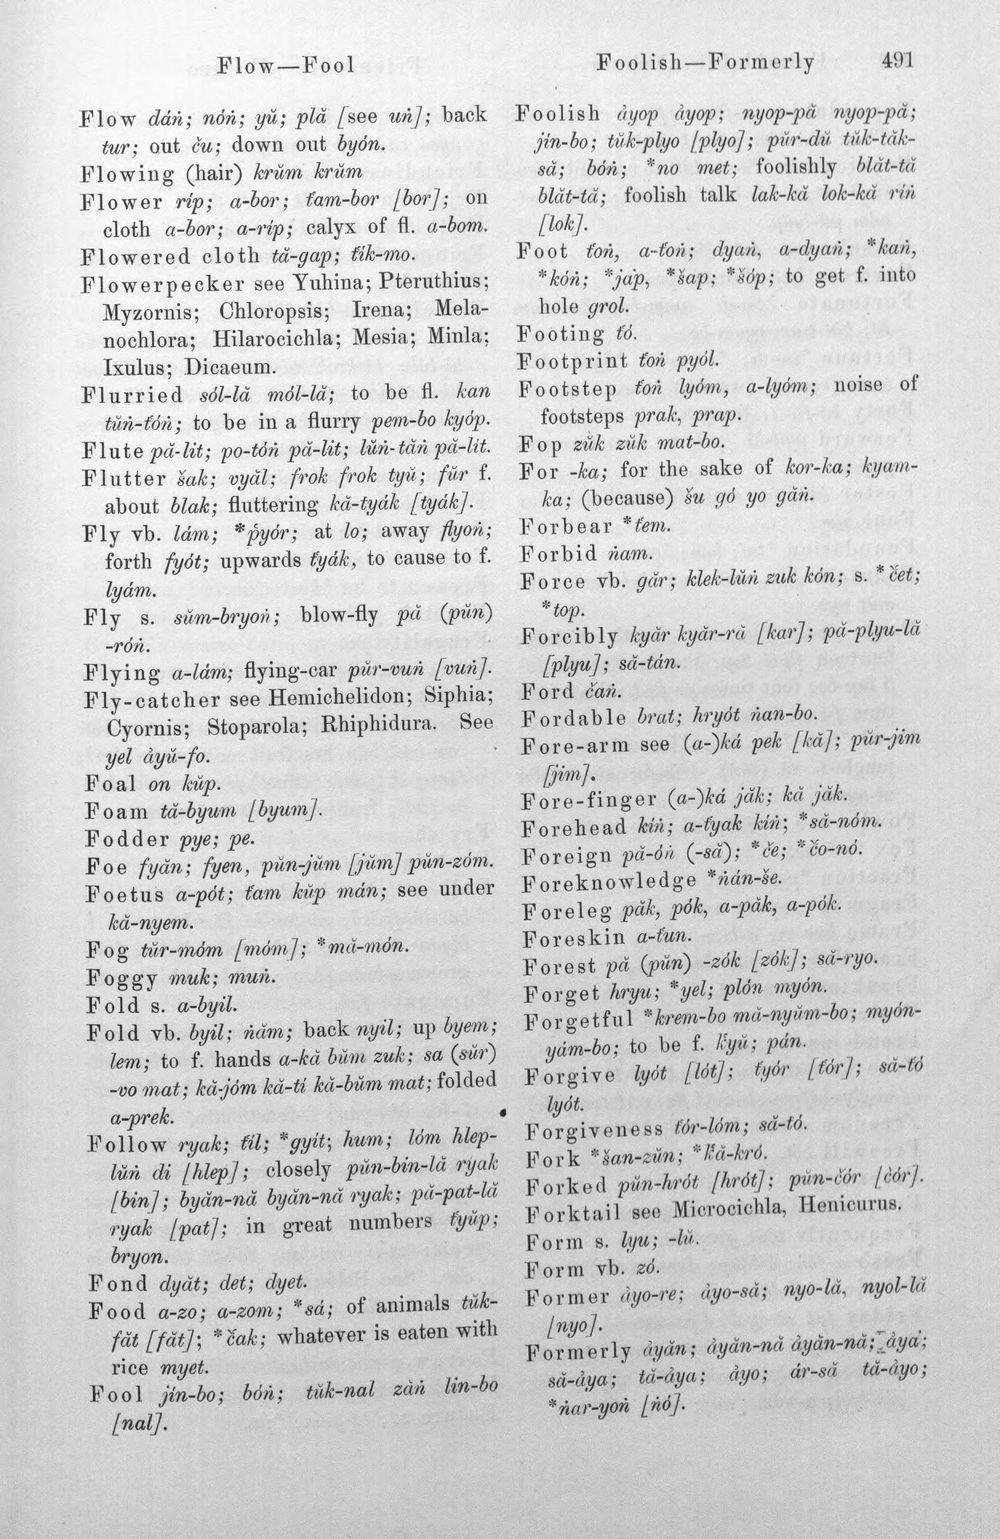 Flow—Fool
Flow dáṅ; nóṅ; yŭ; plă [see uṅ]; back
tur; out c̆u; down out byón.
Flowing (hair) krŭm krŭm
Flower ríp; a-bor; t́am-bor [bor]; on
cloth a-bor; a-ríp; calyx of fl. a-bom.
Flowered cloth tă-gap; t́ík-mo.
Flowerpecker see Yuhina; Pteruthius;
Myzornis; Chloropsis; Irena; Mela-
nochlora; Hilarocichla; Mesia; Minla;
Ixulus; Dicaeum.
Flurried sól-lă mól-lă; to be fl. kan
tŭṅ-t́óṅ; to be in a flurry pem-bo kyóp.
Flute pă-lit; po-tóṅ pă-lit; lŭṅ-tăṅ pă-lit.
Flutter s̆ak; vyăl; frok frok tyŭ; fŭr f.
about blak; fluttering kă-tyák [tyák].
Fly vb. lám; *ṕyór; at lo; away flyoṅ;
forth fyót; upwards t́yák, to cause to f.
lyám.
Fly s. sŭm-bryoṅ; blow-fly pă (pŭn)
-róṅ.
Flying a-lám; flying-car pŭr-vuṅ [vuṅ].
Fly-catcher see Hemichelidon; Siphia;
Cyornis; Stoparola; Rhiphidura. See
yel ȧyŭ-fo.
Foal on kŭp.
Foam tă-byum [byum].
Fodder pye; pe.
Foe fyăn; fyen, pŭn-jŭm [jŭm] pŭn-zóm.
Foetus a-pót; t́am kŭp mán; see under
kă-nyem.
Fog tŭr-móm [móm]; *mă-món.
Foggy muk; muṅ.
Fold s. a-byil.
Fold vb. byil; ṅăm; back nyil; up byem;
lem; to f. hands a-kă bŭm zuk; sa (sŭr)
-vo mat; kă-jóm kă-tí kă-bŭm mat; folded
a-prek.
Follow ryak; t́íl; *gyít; hum; lóm hlep-
lŭṅ di [hlep]; closely pŭn-bin-lă ryak
[bin]; byăn-nă byăn-nă ryak; pă-pat-lă
ryak [pat]; in great numbers t́yŭp;
bryon.
Fond dyăt; det; dyet.
Food a-zo; a-zom; *sá; of animals tŭk-
făt [făt]; *c̆ak; whatever is eaten with
rice myet.
Fool jín-bo; bóṅ; tŭk-nal zăṅ lin-bo
[nal].
Foolish—Formerly 491
Foolish ȧyop ȧyop; nyop-pă nyop-pă;
jín-bo; tŭk-plyo [plyo]; pŭr-dŭ tŭk-tăk-
să; bóṅ; *no met; foolishly blăt-tă
blăt-tă; foolish talk lak-kă lok-kă riṅ
[lok].
Foot t́oṅ, a-t́oṅ; dyaṅ, a-dyaṅ; *kaṅ,
*kóṅ; *jáp, *s̆ap; *s̆óp; to get f. into
hole grol.
Footing t́ó.
Footprint t́oṅ pyól.
Footstep t́oṅ lyóm, a-lyóm; noise of
footsteps prak, prap.
Fop zŭk zŭk mat-bo.
For -ka; for the sake of kor-ka; kyam-
ka; (because) s̆u gó yo găṅ.
Forbear *t́em.
Forbid ṅam.
Force vb. găr; klek-lŭṅ zuk kón; s. *c̆et;
*top.
Forcibly kyăr kyăr-ră [kar]; pă-plyu-lă
[plyu]; să-tán.
Ford c̆aṅ.
Fordable brat; hryót ṅan-bo.
Fore-arm see (a-)ká pek [kă]; pŭr-jim
[jim].
Fore-finger (a-)ká jăk; kă jăk.
Forehead kíṅ; a-t́yak kíṅ; *să-nóm.
Foreign pă-óṅ (-să); *c̆e; *c̆o-nó.
Foreknowledge *ṅán-s̆e.
Foreleg păk, pók, a-păk, a-pók.
Foreskin a-t́un.
Forest pă (pŭn) -zók [zók]; să-ryo.
Forget hryu; *yel; plón myón.
Forgetful *krem-bo mă-nyŭm-bo; myón-
yám-bo; to be f. ḱyŭ; pán.
Forgive lyót [lót]; t́yór [t́ór]; să-t́ó
lyót.
Forgiveness t́ór-lóm; să-t́ó.
Fork *s̆an-zŭn; *ḱă-kró.
Forked pŭn-hrót [hrót]; pŭn-c̆ór [c̆ór].
Forktail see Microcichla, Henicurus.
Form s. lyu; -lŭ.
Form vb. zó.
Former ȧyo-re; ȧyo-să; nyo-lă, nyol-lă
[nyo].
Formerly ȧyăn; ȧyăn-nă ȧyăn-nă; ȧya;
să-ȧya; tă-ȧya; ȧyo; ár-să tă-ȧyo;
*ṅar-yoṅ [ṅó].